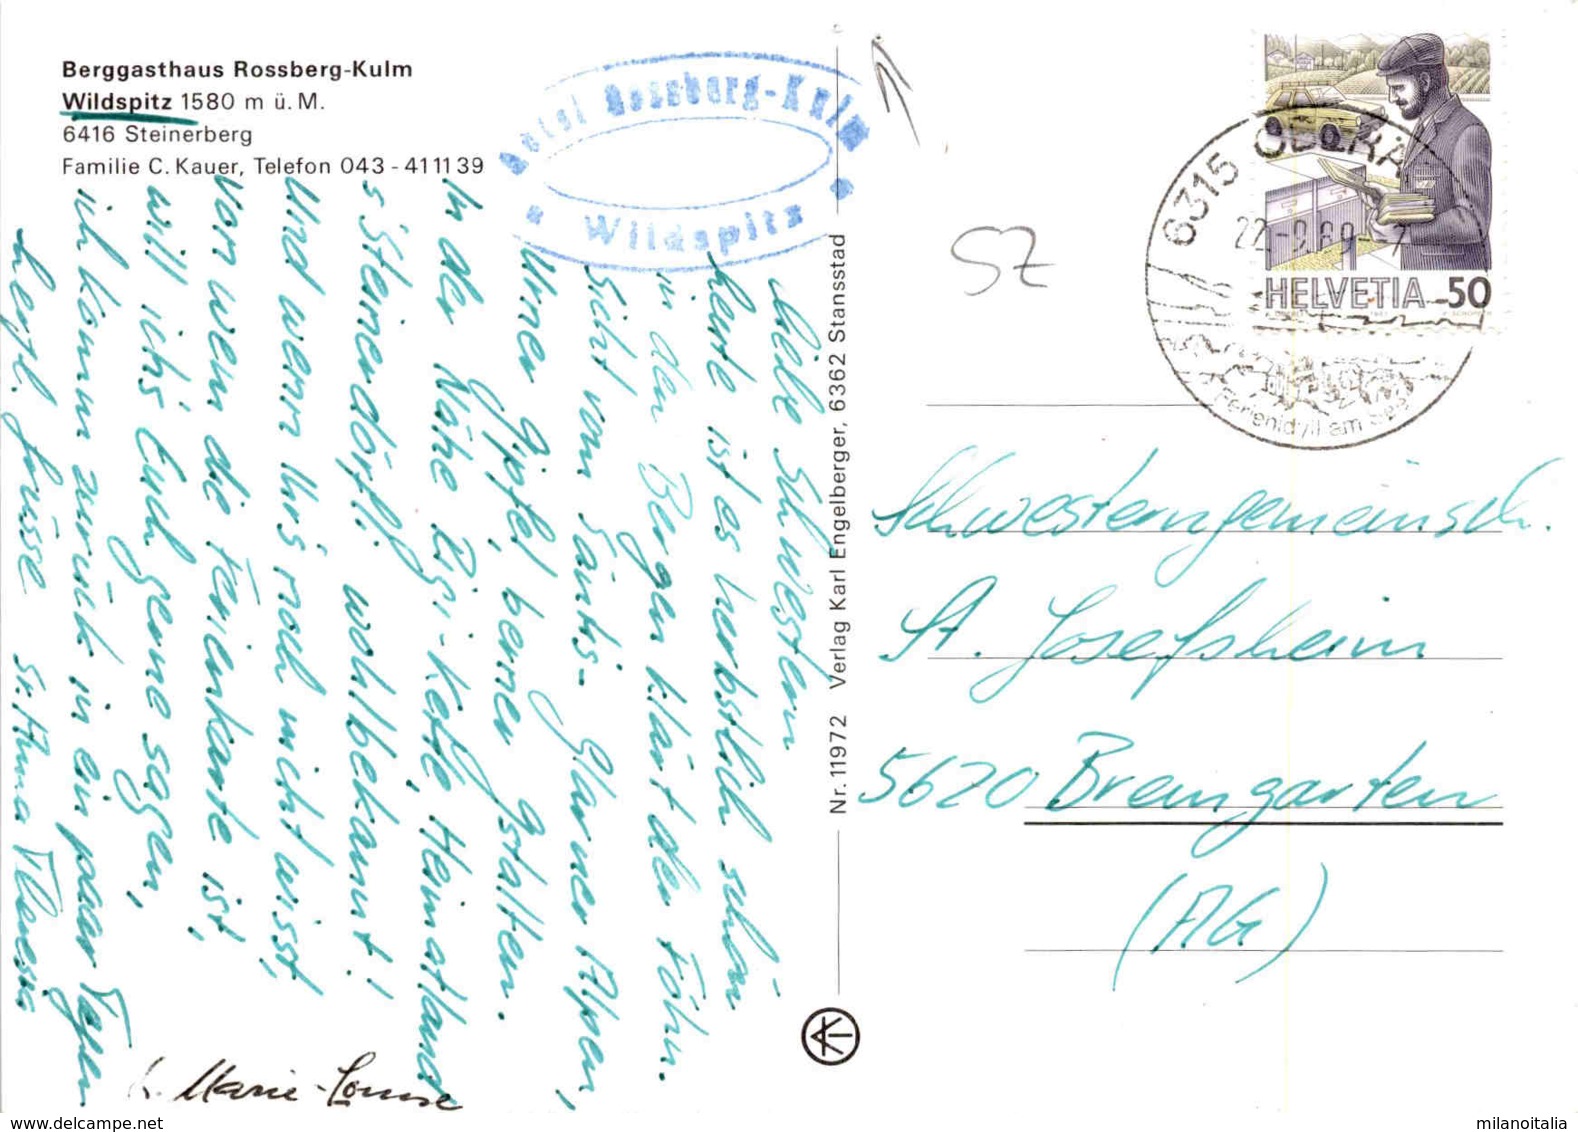 Berggasthaus Rossberg-Kulm
Wildspitz 1580 m ü. M.
6416 Steinerberg
Familie C. Kauer, Telefon 043 - 41 11 39
Hotel Rossberg-Kulm
Wildspitz
Liebe Schwestern
heute ist es herbstlich schön
in den Bergen klärt der Föhn.
Sicht vom Säntis- Glarner Alpen,
Urner Gipfel, berner gstalten.
In der Nähe Rigi-Kette, Heimatland
s'Steinerdörfli wohlbekannt!
Und wenn Ihrs noch nicht wisst,
von wem die Ferienkarte ist,
will ichs Euch gerne sagen,
ich komm zurück in ein paar Tagen
herzl. grüsse Sr. Anna Theresia
Marie-Louise
Nr. 11972 Verlag Karl Engelberger, 6362 Stansstad
SZ
6315 OBERÄ
22.-9.89-7
Ferienidyll am See
HELVETIA 50
Schwesterngemeinsch.
St. Josefsheim
5620 Bremgarten
(AG)
www.delcampe.net
milanoitalia